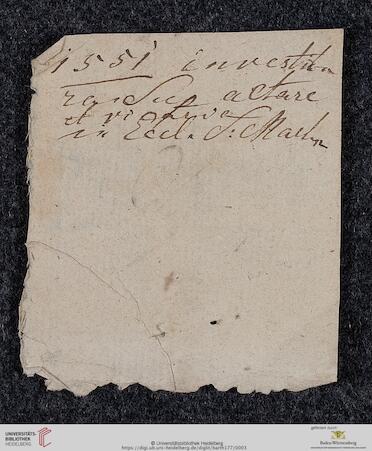 1551 investitu
ra super altare
et vicaria
in Eccl. S. Mart
UNIVERSITÄTS-
BIBLIOTHEK
HEIDELBERG
© Universitätsbibliothek Heidelberg
https://digi.ub.uni-heidelberg.de/diglit/barth177/0003
gefördert durch
Baden-Württemberg